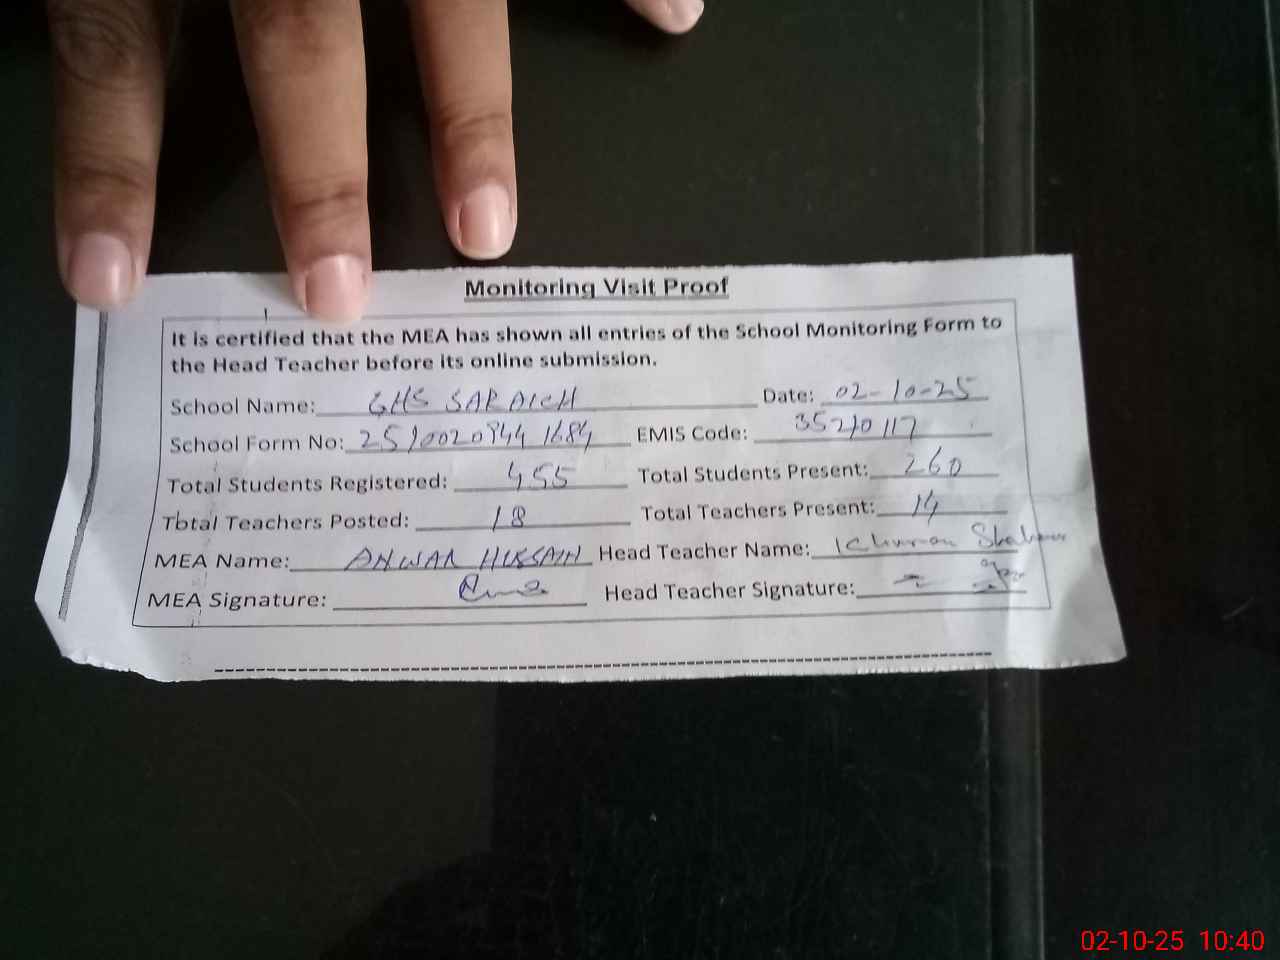 Monitoring Visit Proof
It is certified that the MEA has shown all entries of the School Monitoring Form to
the Head Teacher before its online submission.
School Name: GHS SARAICH Date: 02-10-25
School Form No: 25100209441684 EMIS Code: 35210117
Total Students Registered: 455 Total Students Present: 260
Total Teachers Posted: 18 Total Teachers Present: 14
MEA Name: ANWAR HUSSAIN Head Teacher Name:
MEA Signature: Head Teacher Signature:
02-10-25 10:40